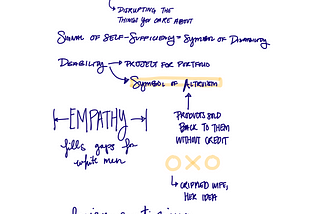 ↳ DISRUPTING THE
THINGS YOU CARE ABOUT
OF SELF-SUFFICIENCY = SYMBOL OF DISABILITY
DISABILITY → PROJECT FOR PORTFOLIO
SYMBOL OF ALTRUISM
EMPATHY
fills gaps for
white men
PRODUCTS SOLD
BACK TO THEM
WITHOUT CREDIT
OXO
↳ CRIPPLED WIFE,
HER IDEA